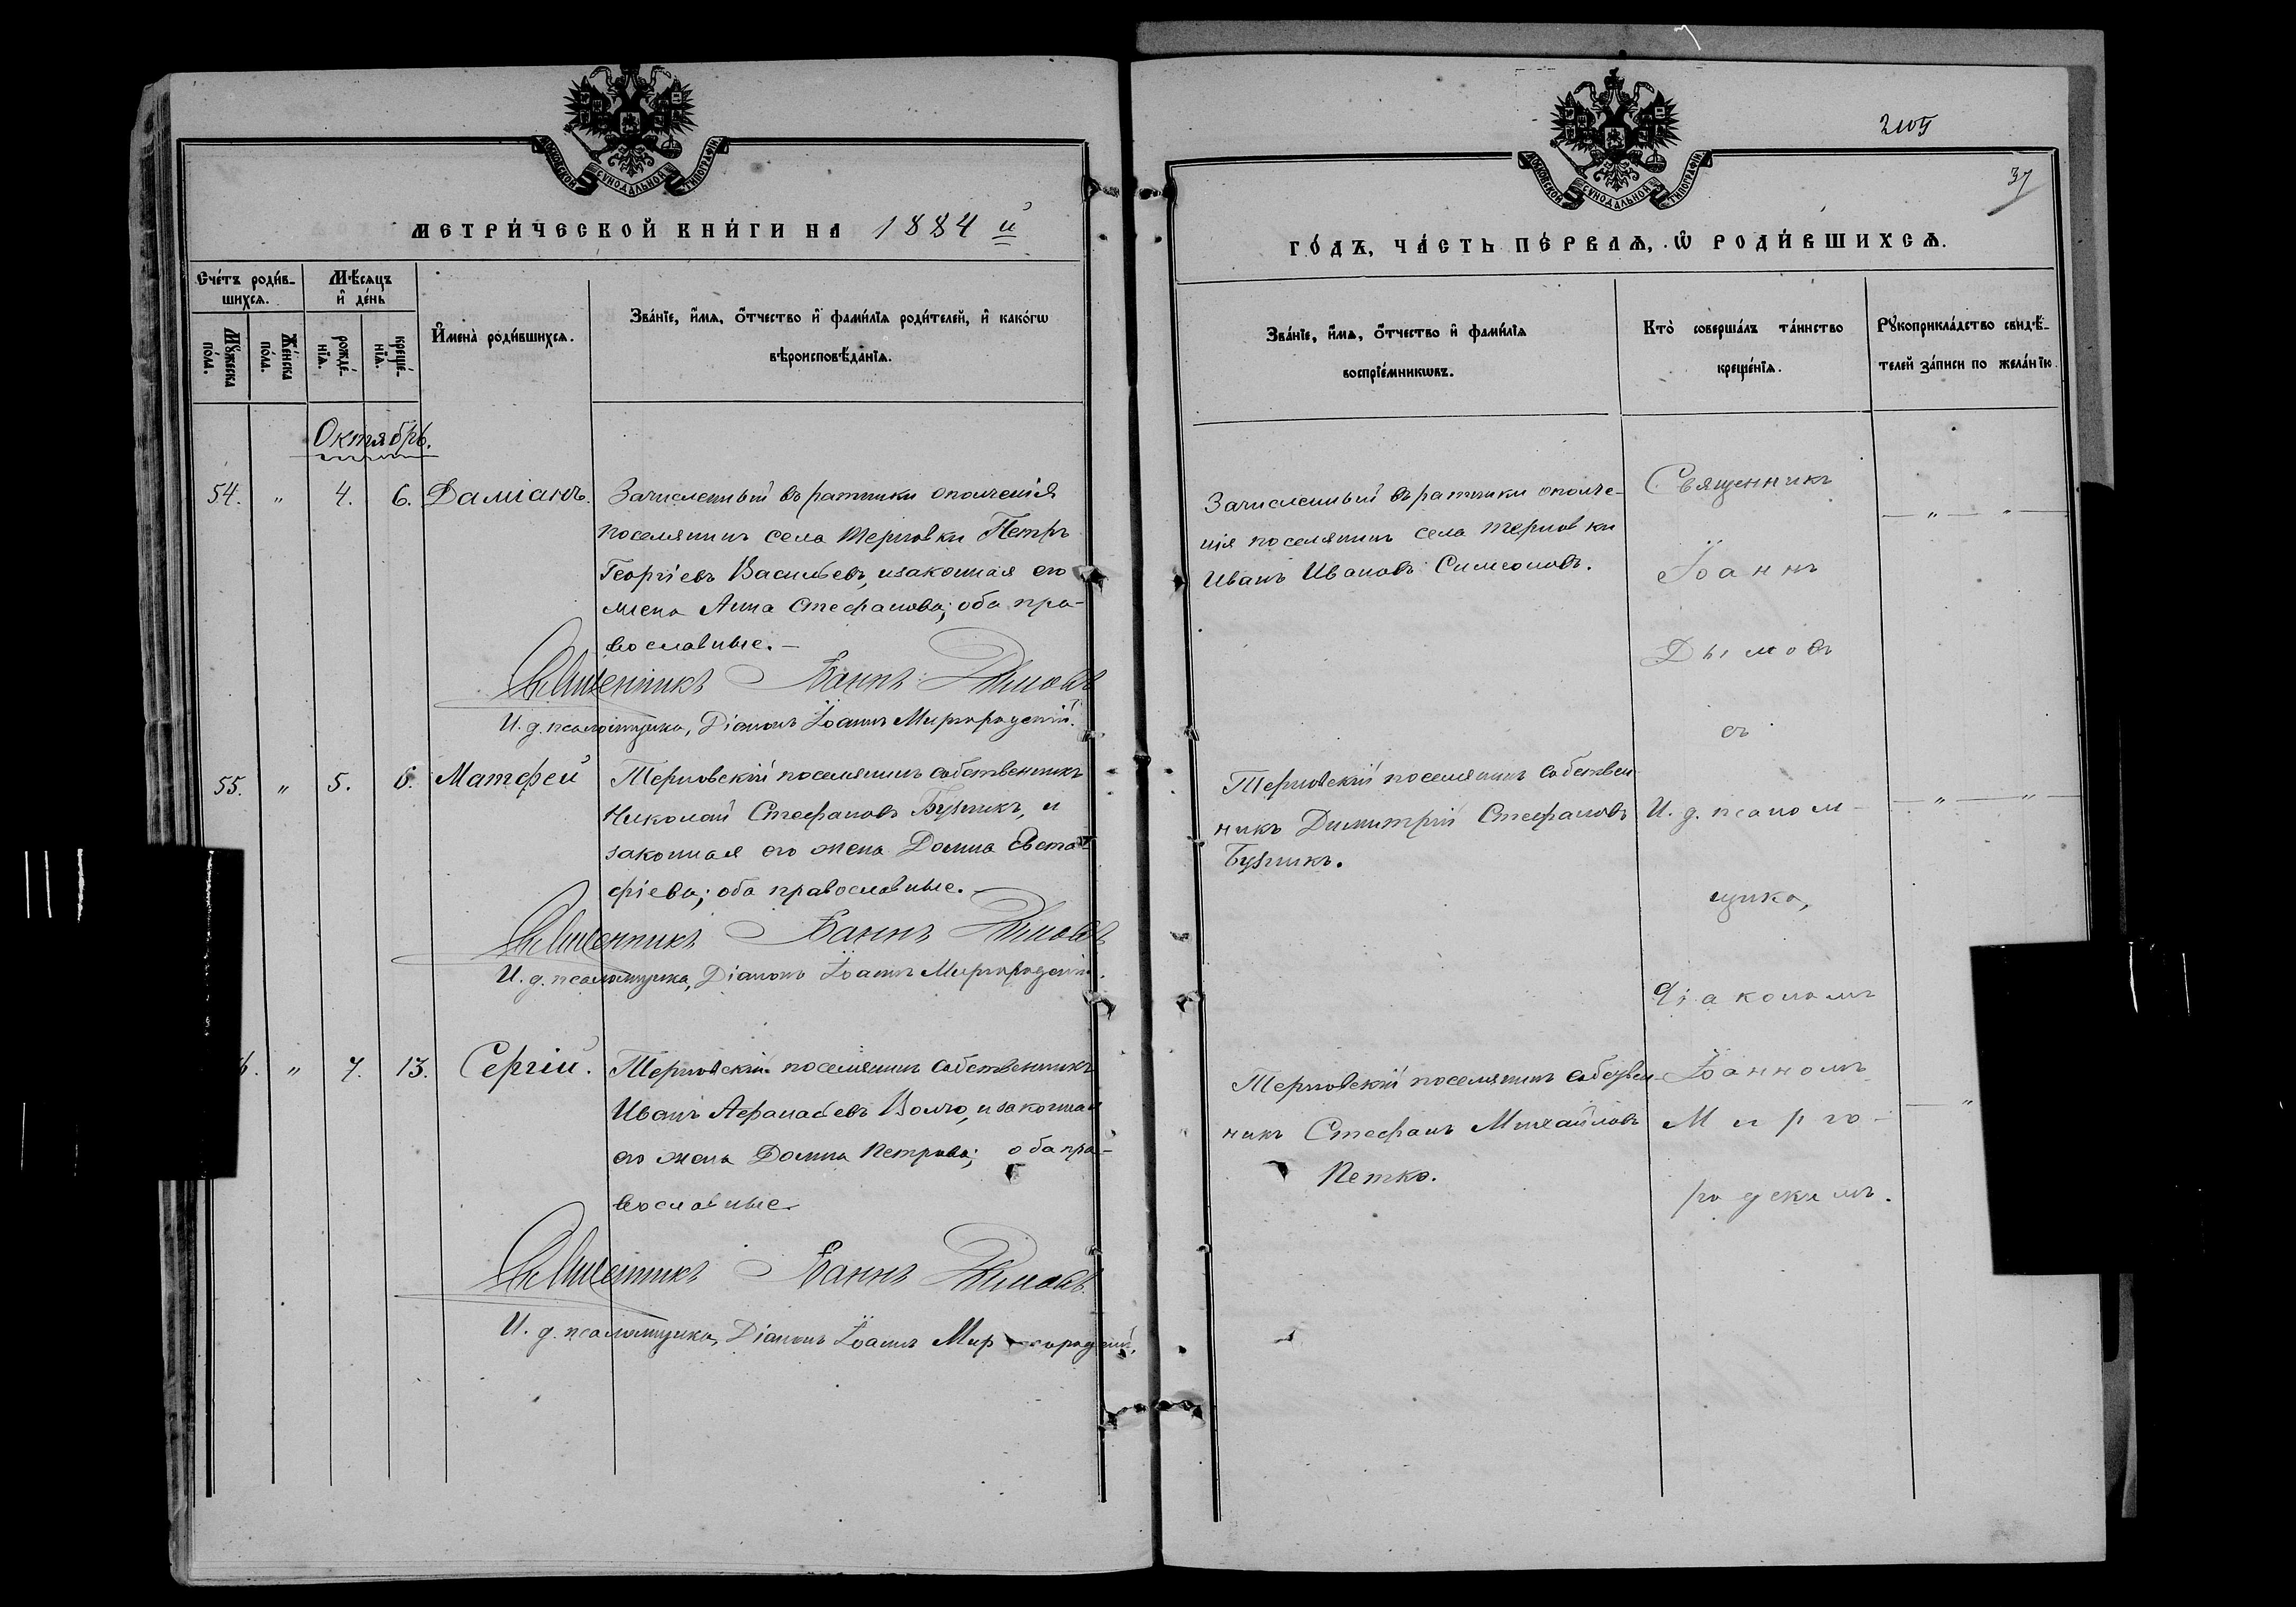 МОСКОВСКОЙ СУНОДАЛЬНОЙ ТИПОГРАФІИ.
МЕТРИ́ЧЕСКОЙ КНИ́ГИ НА 1884 й
Сче́тъ роди́в-
шихсѧ.
Мꙋ́жеска
по́ла.
Же́нска
по́ла.
Мѣ́сѧцъ
и҆ де́нь
рожде́-
нїѧ.
креще́-
нїѧ.
И҆мена̀ роди́вшихсѧ.
Зва́нїе, и҆́мѧ, ѻ҆́тчество и҆ фами́лїѧ роди́телей, и҆ како́гѡ
вѣроисповѣ́данїѧ.
Октябрь.
54. " 4. 6. Даміанъ.
Зачисленный въ ратники ополченія
поселянинъ села Терновки Петръ
Георгіевъ Васильевъ, и законная его
жена Анна Стефанова; оба пра-
вославные.-
Священникъ Іоаннъ Дымовъ
И. д. псаломщика, Діаконъ Іоаннъ Миргородскій.
55. " 5. 6. Матфей
Терновскій поселянинъ собственникъ
Николай Стефановъ Бузникъ, и
законная его жена Домна Евста-
фіева; оба православные.
Священникъ Іоаннъ Дымовъ
И. д. псаломщика, Діаконъ Іоаннъ Миргородскій.
6. " 7. 13. Сергій.
Терновскій поселянинъ собственникъ
Иванъ Афанасьевъ Волчо, и законная
его жена Домна Петрова; оба пра-
вославные.
Священникъ Іоаннъ Дымовъ
И. д. псаломщика, Діаконъ Іоаннъ Миргородскій.
МОСКОВСКОЙ СУНОДАЛЬНОЙ ТИПОГРАФІИ.
37
ГО́ДЪ, ЧА́СТЬ ПЕ́РВАѦ, Ѡ҆ РОДИ́ВШИХСѦ.
Зва́нїе, и҆́мѧ, ѻ҆́тчество и҆ фами́лїѧ
воспрїе́мникѡвъ.
Кто̀ соверша́лъ та́инство
креще́нїѧ.
Рꙋкоприкла́дство свидѣ́-
телей за́писи по жела́нїю.
Зачисленный въ ратники ополче-
нія поселянинъ села Терновки
Иванъ Ивановъ Симеоновъ.
Терновскій поселянинъ собствен-
никъ Димитрій Стефановъ
Бузникъ.
Терновскій поселянинъ собствен-
никъ Стефанъ Михайловъ
Петко.
Священникъ
Іоаннъ
Дымовъ
съ
И. д. псалом-
щика,
Діакономъ
Іоанномъ
Мирго-
родскимъ.